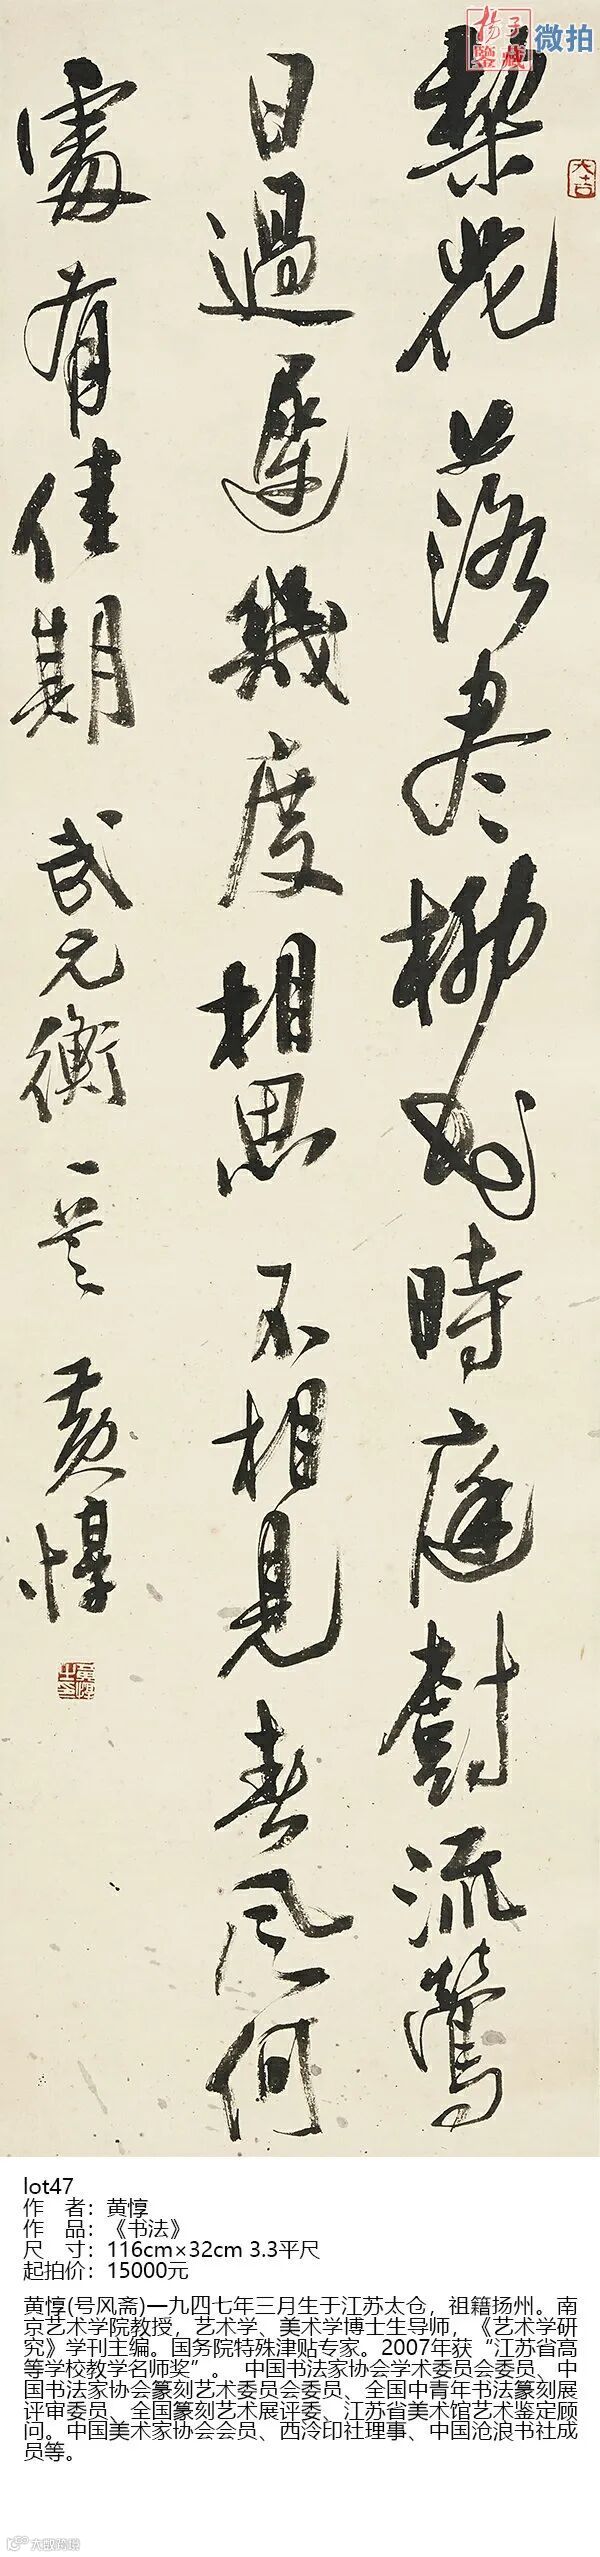 扬子
鑒藏
微拍
大吉
棃花落尽柳花時庭樹流鶯
日過遲幾度相思不相見春風何
處有佳期 武元衡 黄惇
黄惇之印
lot47
作 者：黄惇
作 品：《书法》
尺 寸：116cm×32cm 3.3平尺
起拍价：15000元
黄惇(号风斋)一九四七年三月生于江苏太仓，祖籍扬州。南
京艺术学院教授，艺术学、美术学博士生导师，《艺术学研
究》学刊主编。国务院特殊津贴专家。2007年获“江苏省高
等学校教学名师奖”。 中国书法家协会学术委员会委员、中
国书法家协会篆刻艺术委员会委员、全国中青年书法篆刻展
评审委员、全国篆刻艺术展评委、江苏省美术馆艺术鉴定顾
问。中国美术家协会会员、西泠印社理事、中国沧浪书社成
员等。